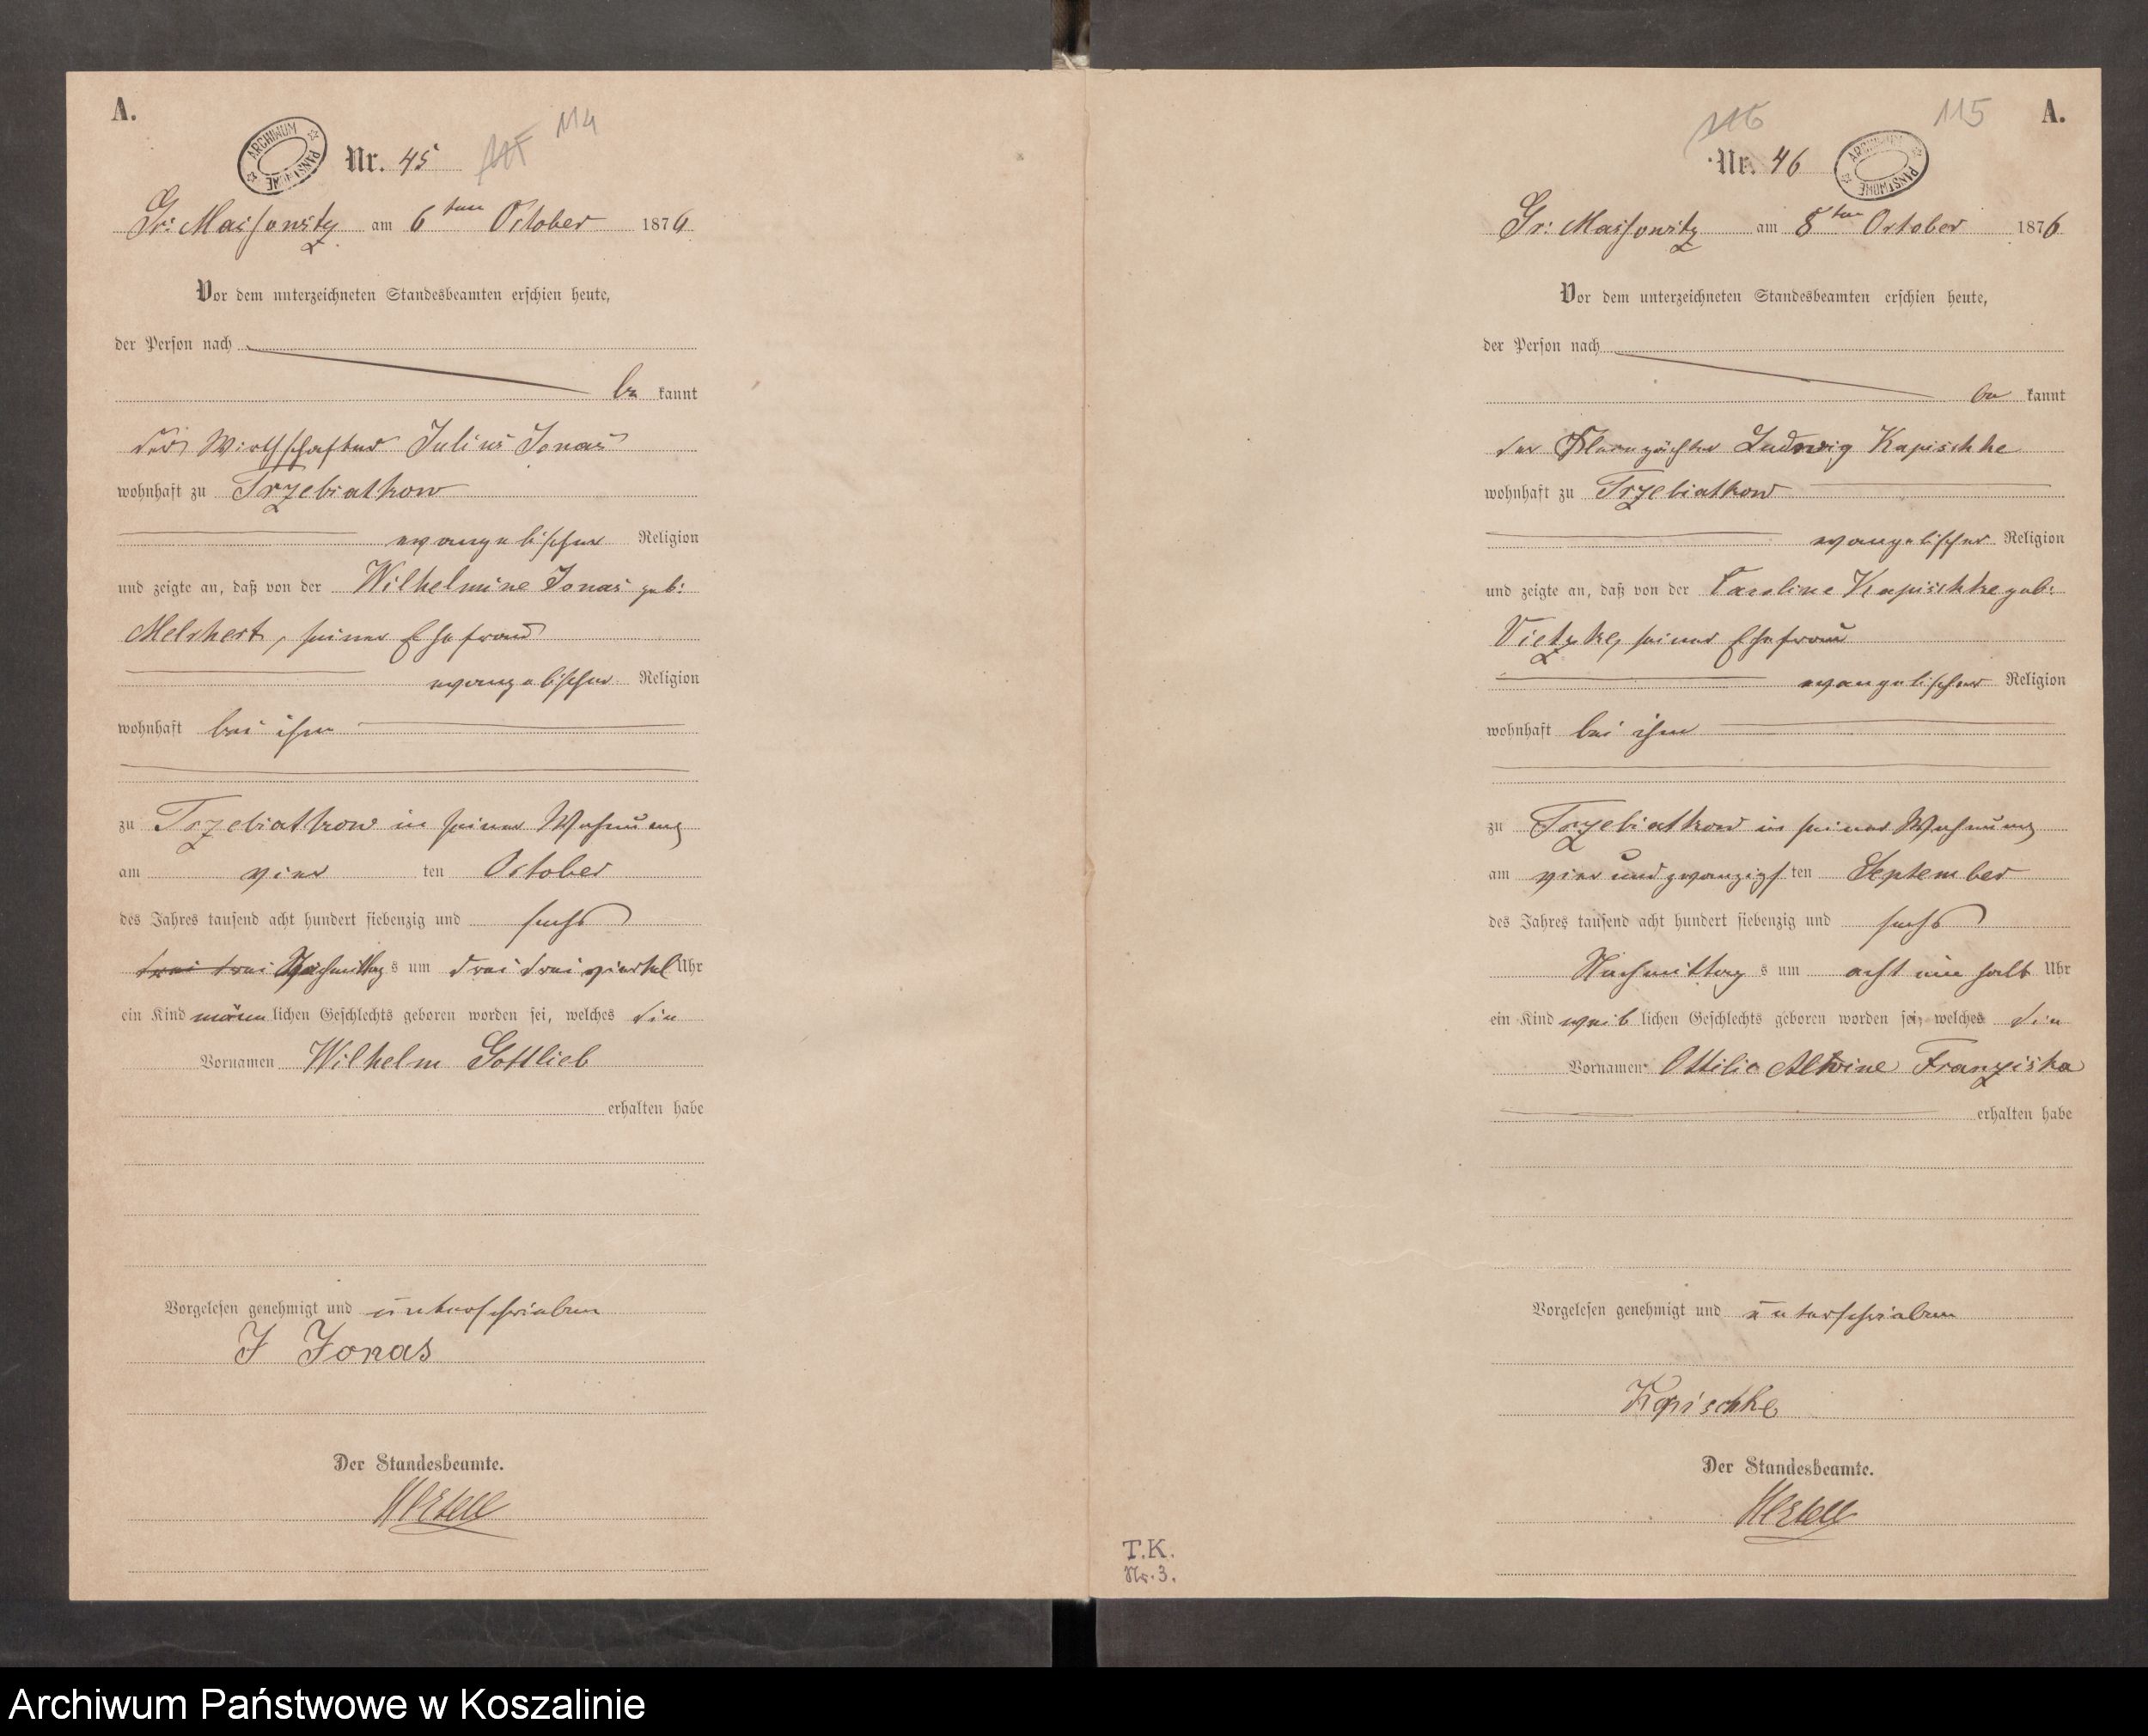 A.
114
ARCHIWUM PAŃSTWOWE
Nr. 45
Gr: Massowitz am 6ten October 1876
Vor dem unterzeichneten Standesbeamten erschien heute,
der Person nach
be kannt
der Wirthschafter Julius Jonas
wohnhaft zu Trzebiatkow
evangelischer Religion
und zeigte an, daß von der Wilhelmine Jonas geb:
Melchert, seiner Ehefrau
evangelischer Religion
wohnhaft bei ihm
zu Trzebiatkow in seiner Wohnung
am vier ten October
des Jahres tausend acht hundert siebenzig und sechs
drei drei Nachmittag s um drei drei viertel Uhr
ein Kind männ lichen Geschlechts geboren worden sei, welches die
Vornamen Wilhelm Gottlieb
erhalten habe
Vorgelesen genehmigt und unterschrieben
J Jonas
Der Standesbeamte.
A.
116
115
Nr. 46
ARCHIWUM PAŃSTWOWE
Gr: Massowitz am 8ten October 1876
Vor dem unterzeichneten Standesbeamten erschien heute,
der Person nach
be kannt
der Ludwig Kapischke
wohnhaft zu Trzebiatkow
evangelischer Religion
und zeigte an, daß von der Caroline Kapischke geb:
Vietzke, seiner Ehefrau
evangelischer Religion
wohnhaft bei ihm
zu Trzebiatkow in seiner Wohnung
am vier und zwanzigs ten September
des Jahres tausend acht hundert siebenzig und sechs
Nachmittag s um acht ein halb Uhr
ein Kind weib lichen Geschlechts geboren worden sei, welches die
Vornamen Ottilie Alwine Franziska
erhalten habe
Vorgelesen genehmigt und unterschrieben
Kapischke
Der Standesbeamte.
T.K.
Nr. 3.
Archiwum Państwowe w Koszalinie